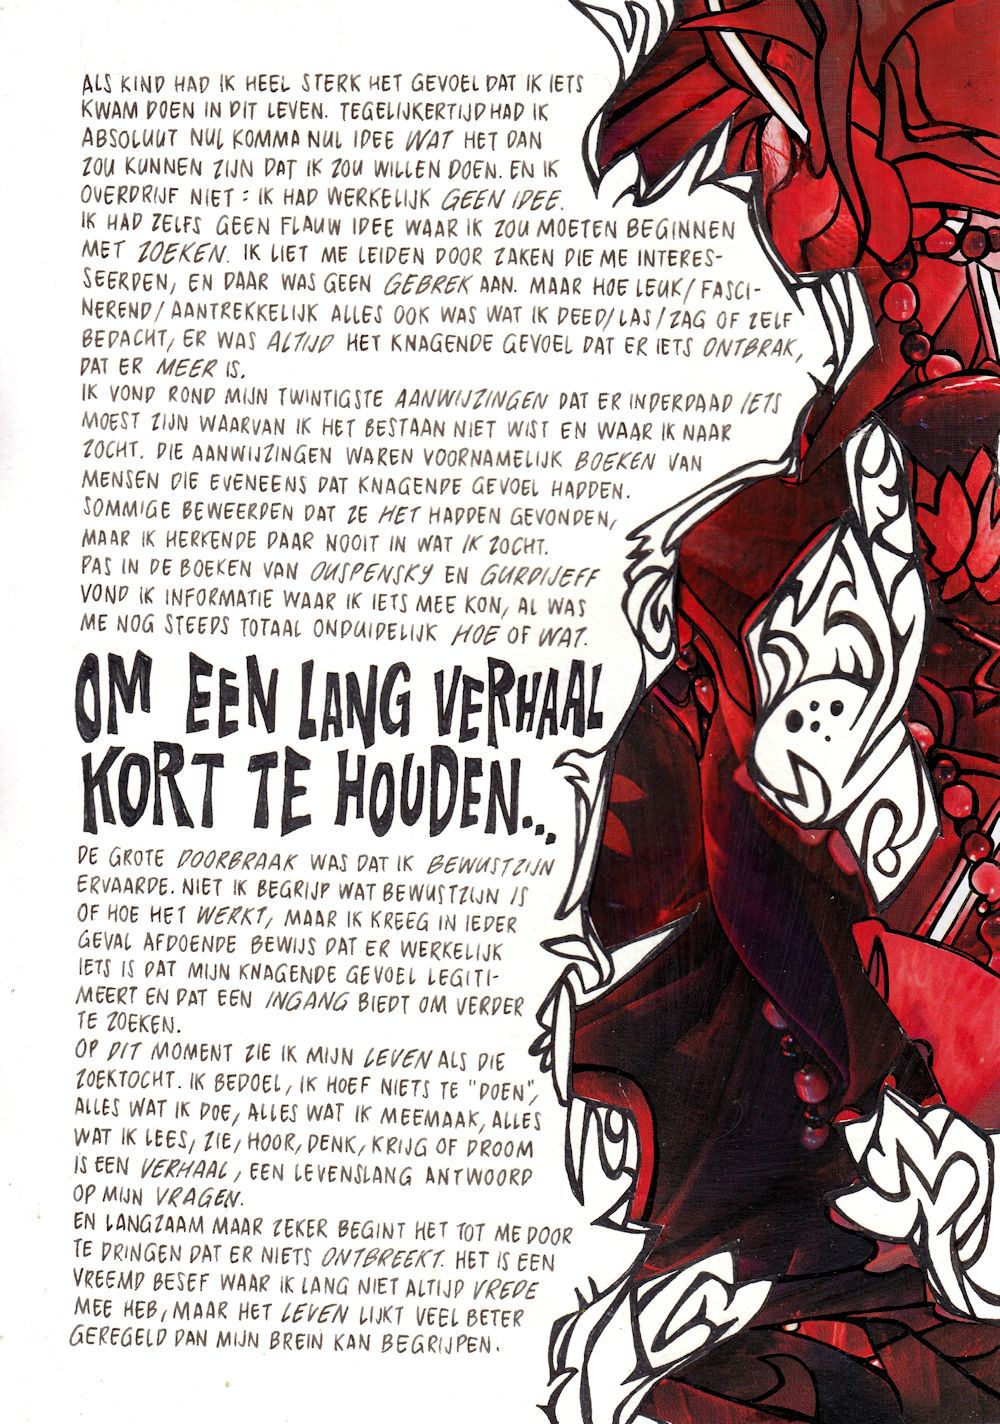 ALS KIND HAD IK HEEL STERK HET GEVOEL DAT IK IETS
KWAM DOEN IN DIT LEVEN. TEGELIJKERTIJD HAD IK
ABSOLUUT NUL KOMMA NUL IDEE WAT HET DAN
ZOU KUNNEN ZIJN DAT IK ZOU WILLEN DOEN. EN IK
OVERDRIJF NIET: IK HAD WERKELIJK GEEN IDEE.
IK HAD ZELFS GEEN FLAUW IDEE WAAR IK ZOU MOETEN BEGINNEN
MET ZOEKEN. IK LIET ME LEIDEN DOOR ZAKEN DIE ME INTERES-
SEERDEN, EN DAAR WAS GEEN GEBREK AAN. MAAR HOE LEUK/FASCI-
NEREND/AANTREKKELIJK ALLES OOK WAS WAT IK DEED/LAS/ZAG OF ZELF
BEDACHT, ER WAS ALTIJD HET KNAGENDE GEVOEL DAT ER IETS ONTBRAK,
DAT ER MEER IS.
IK VOND ROND MIJN TWINTIGSTE AANWIJZINGEN DAT ER INDERDAAD IETS
MOEST ZIJN WAARVAN IK HET BESTAAN NIET WIST EN WAAR IK NAAR
ZOCHT. DIE AANWIJZINGEN WAREN VOORNAMELIJK BOEKEN VAN
MENSEN DIE EVENEENS DAT KNAGENDE GEVOEL HADDEN.
SOMMIGE BEWEERDEN DAT ZE HET HADDEN GEVONDEN,
MAAR IK HERKENDE DAAR NOOIT IN WAT IK ZOCHT.
PAS IN DE BOEKEN VAN OUSPENSKY EN GURDIJEFF
VOND IK INFORMATIE WAAR IK IETS MEE KON, AL WAS
ME NOG STEEDS TOTAAL ONDUIDELIJK HOE OF WAT.
OM EEN LANG VERHAAL
KORT TE HOUDEN...
DE GROTE DOORBRAAK WAS DAT IK BEWUSTZIJN
ERVAARDE. NIET IK BEGRIJP WAT BEWUSTZIJN IS
OF HOE HET WERKT, MAAR IK KREEG IN IEDER
GEVAL AFDOENDE BEWIJS DAT ER WERKELIJK
IETS IS DAT MIJN KNAGENDE GEVOEL LEGITI-
MEERT EN DAT EEN INGANG BIEDT OM VERDER
TE ZOEKEN.
OP DIT MOMENT ZIE IK MIJN LEVEN ALS DIE
ZOEKTOCHT. IK BEDOEL, IK HOEF NIETS TE "DOEN",
ALLES WAT IK DOE, ALLES WAT IK MEEMAAK, ALLES
WAT IK LEES, ZIE, HOOR, DENK, KRIJG OF DROOM
IS EEN VERHAAL, EEN LEVENSLANG ANTWOORD
OP MIJN VRAGEN.
EN LANGZAAM MAAR ZEKER BEGINT HET TOT ME DOOR
TE DRINGEN DAT ER NIETS ONTBREEKT. HET IS EEN
VREEMD BESEF WAAR IK LANG NIET ALTIJD VREDE
MEE HEB, MAAR HET LEVEN LIJKT VEEL BETER
GEREGELD DAN MIJN BREIN KAN BEGRIJPEN.